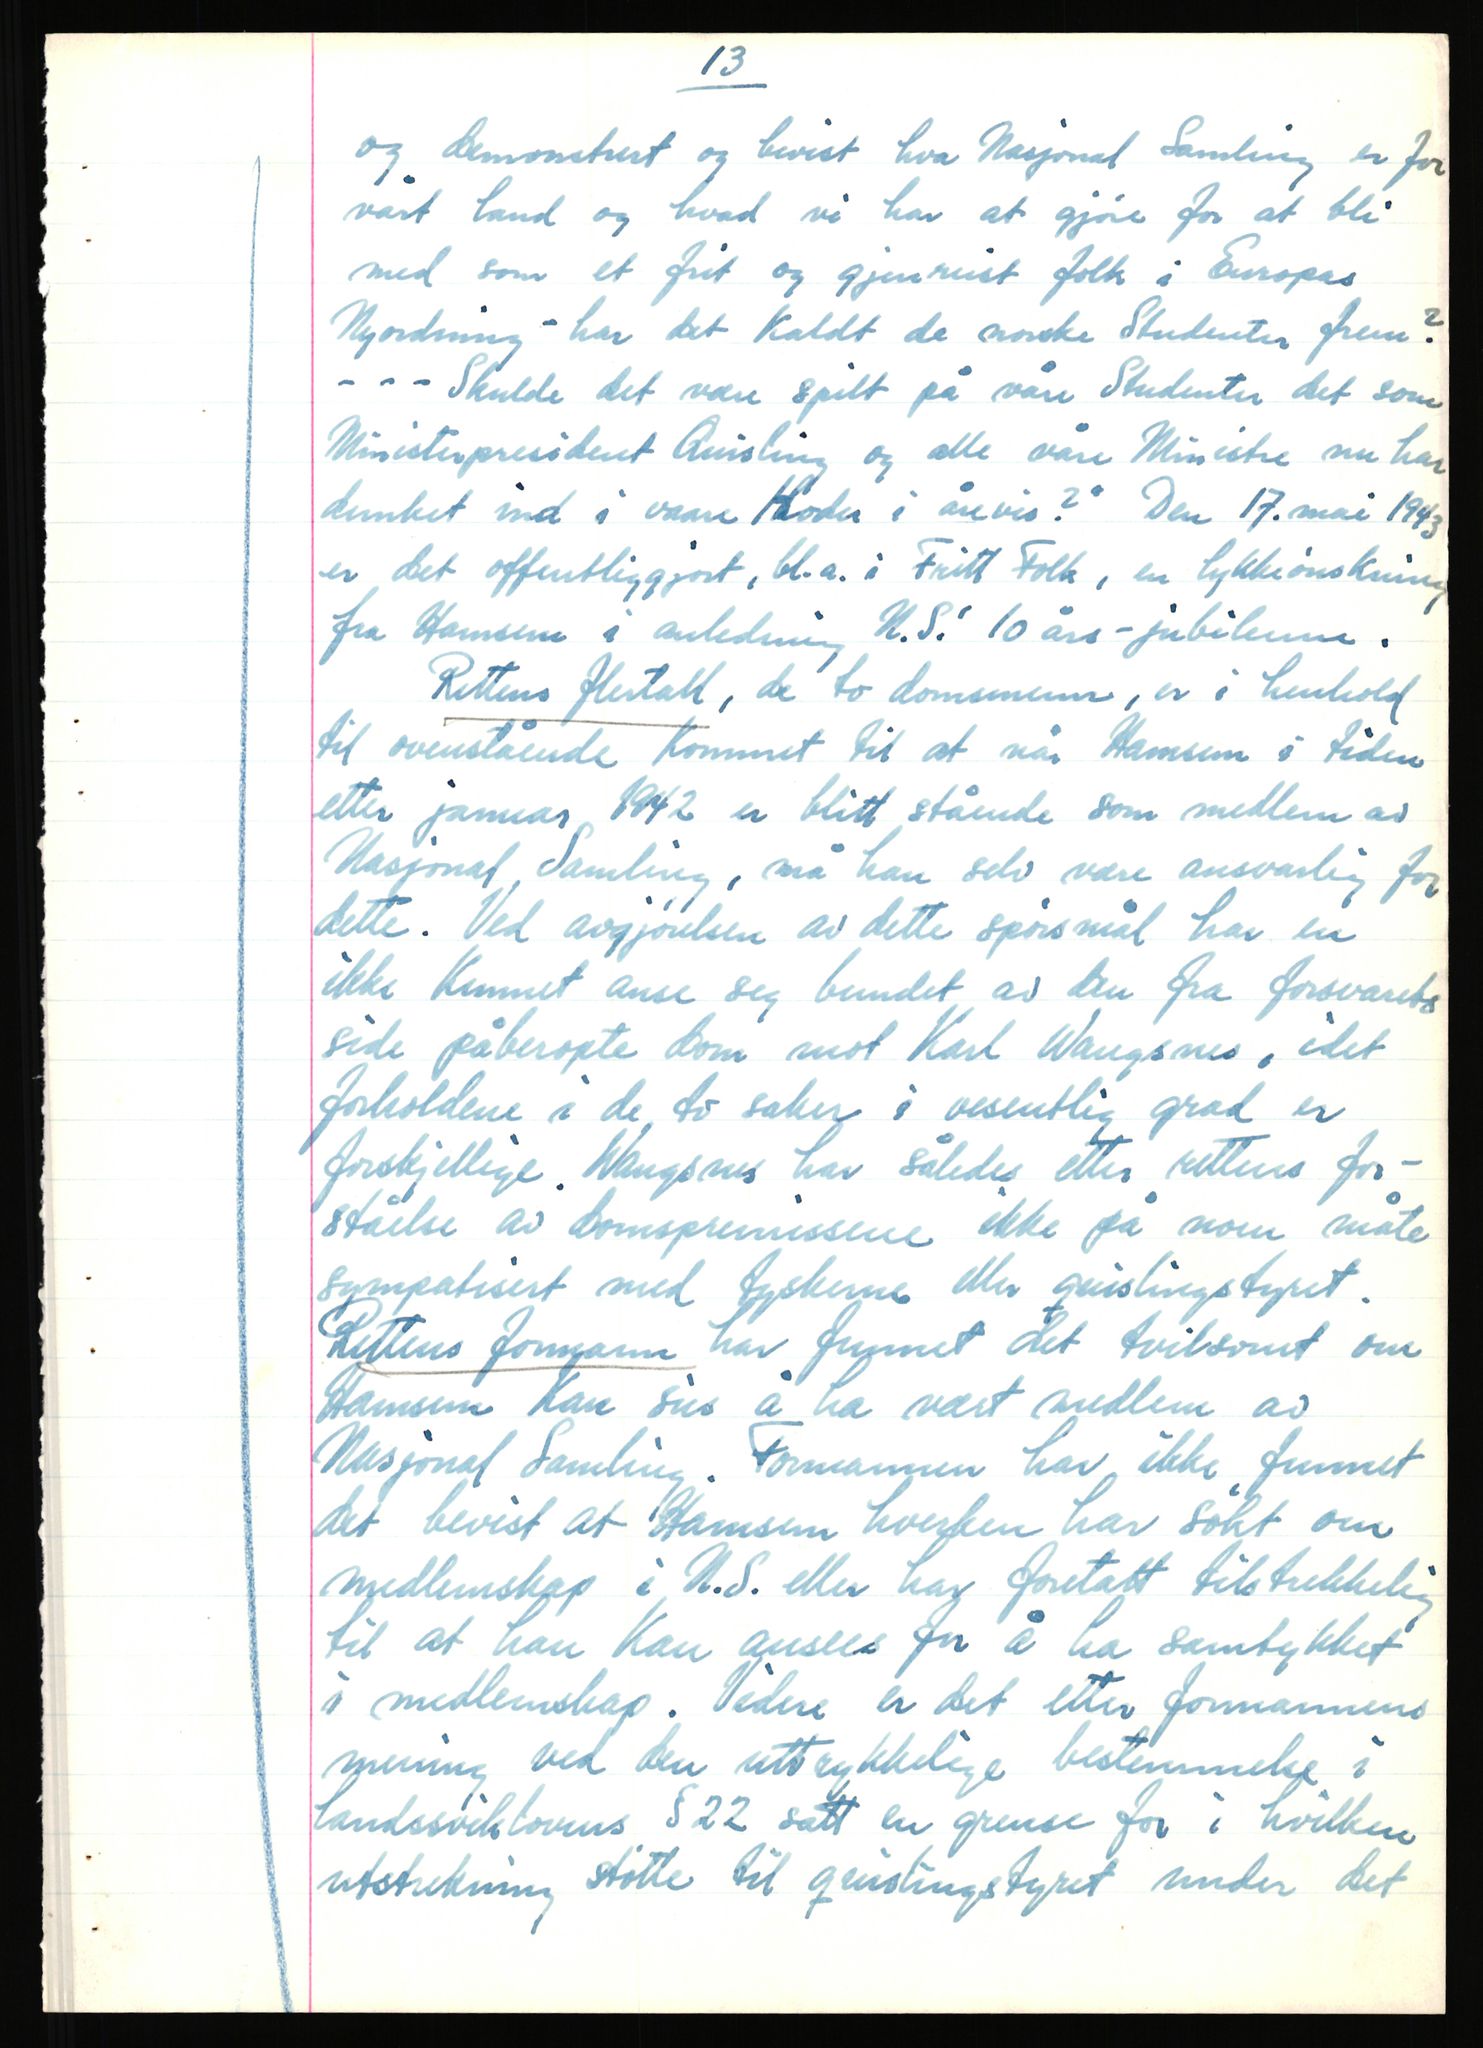 13
og demonstrert og bevist hva Nasjonal Samling er for
vårt land og hvad vi har at gjöre for at bli
med som et frit og gjenreist folk i Europas
Nyordning - har det kaldt de norske Studenter frem?
- - - Skulde det være spilt på våre Studenter det som
Ministerpresident Quisling og alle våre Ministre nu har
dunket ind i vaare Hoder i årevis?" Den 17. mai 1943
er det offentliggjort, bl.a. i Fritt Folk, en lykkönskning
fra Hamsun i anledning N.S.' 10 års-jubileum.
Rettens flertall, de to domsmenn, er i henhold
til ovenstående kommet til at når Hamsun i tiden
etter januar 1942 er blitt stående som medlem av
Nasjonal Samling, må han selv være ansvarlig for
dette. Ved avgjörelsen av dette spörsmål har en
ikke kunnet anse seg bundet av den fra forsvarets
side påberopte dom mot Karl Wangsnes, idet
forholdene i de to saker i vesentlig grad er
forskjellige. Wangsnes har således etter rettens for-
ståelse av domspremissene ikke på noen måte
sympatisert med tyskerne eller quislingstyret.
Rettens formann har funnet det tvilsomt om
Hamsun kan sies å ha vært medlem av
Nasjonal Samling. Formannen har ikke funnet
det bevist at Hamsun hverken har sökt om
medlemskap i N.S. eller har foretatt tilstrekkelig
til at han kan ansees for å ha samtykket
i medlemskap. Videre er det etter formannens
mening ved den uttrykkelige bestemmelse i
landssviklovens § 22 satt en grense for i hvilken
utstrekning stötte til quislingstyret under det